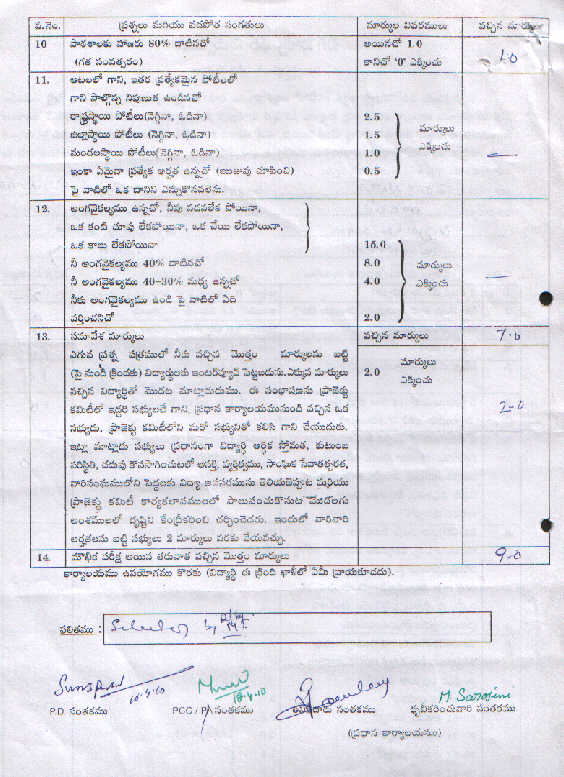 వ.నెం. ప్రశ్నలు మరియు వడపోత సంగతులు మార్కుల వివరములు వచ్చిన మార్కులు
10 పాఠశాలకు హాజరు 80% దాటినచో అయినచో 1.0 1.0
(గత సంవత్సరం) కానిచో '0' ఎక్కించు
11. ఆటలలో గాని, ఇతర ప్రత్యేకమైన పోటీలలో
గాని పాల్గొన్న నిపుణుత ఉండినచో
రాష్ట్రస్థాయి పోటీలు(నెగ్గినా, ఓడినా) 2.5 మార్కులు
జిల్లాస్థాయి పోటీలు (నెగ్గినా, ఓడినా) 1.5 ఎక్కించు
మండలస్థాయి పోటీలు(నెగ్గినా, ఓడినా) 1.0 —
ఇంకా ఏమైనా ప్రత్యేక అర్హత ఉన్నచో (ఋజువు చూపించి) 0.5
పై వాటిలో ఒక దానిని ఎన్నుకొనవలెను.
12. అంగవైకల్యము ఉన్నచో, నీవు నడవలేక పోయినా,
ఒక కంటి చూపు లేకపోయినా, ఒక చేయి లేకపోయినా,
ఒక కాలు లేకపోయినా 15.0
నీ అంగవైకల్యము 40% దాటినచో 8.0 మార్కులు
నీ అంగవైకల్యము 40-30% మధ్య ఉన్నచో 4.0 ఎక్కించు —
నీకు అంగవైకల్యము ఉండి పై వాటిలో ఏది
వర్తించనిచో 2.0
13. సమావేశ మార్కులు వచ్చిన మార్కులు 7.0
ఎగువ ప్రశ్న పత్రములో నీకు వచ్చిన మొత్తం మార్కులను బట్టి మార్కులు
(పై నుండి క్రిందకు) విద్యార్థులకు ఇంటర్వ్యూకై పెట్టబడును. ఎక్కువ మార్కులు 2.0 ఎక్కించు
వచ్చిన విద్యార్థితో మొదట మాట్లాడుదుము. ఈ సంభాషణను ప్రాజెక్టు
కమిటీలో ఇద్దరి సభ్యులచే గాని, ప్రధాన కార్యాలయమునుండి వచ్చిన ఒక 2-0
సభ్యుడు, ప్రాజెక్టు కమిటీలోని మరో సభ్యునితో కలిసి గాని చేయుదురు.
ఇట్లా మాట్లాడు సభ్యులు ప్రధానంగా విద్యార్థి ఆర్థిక స్తోమత, కుటుంబ
పరిస్థితి, చదువు కొనసాగించుటలో ఆసక్తి, వ్యక్తిత్వము, సాంఘిక సేవాతత్పరత,
వారిసంఘములోని పెద్దలకు విద్యా అవసరమును తెలియజెప్పుట మరియు
ప్రాజెక్టు కమిటీ కార్యకలాపములలో పాలుపంచుకొనుట మొదలగు
అంశములలో దృష్టిని కేంద్రీకరించి చర్చించెదరు. ఇందులో వారివారి
అర్హతలను బట్టి సభ్యులు 2 మార్కులు వరకు వేయవచ్చు.
14. మౌఖిక పరీక్ష అయిన తరువాత వచ్చిన మొత్తం మార్కులు 9-0
కార్యాలయము ఉపయోగము కొరకు (విద్యార్థి ఈ క్రింది ఖాళీలో ఏమీ వ్రాయకూడదు).
ఫలితము :
18.4.10 18.4.10 M. Sarojini
P.D సంతకము PCC / PA సంతకము సంతకము ధృవీకరించువారి సంతకము
(ప్రధాన కార్యాలయము)